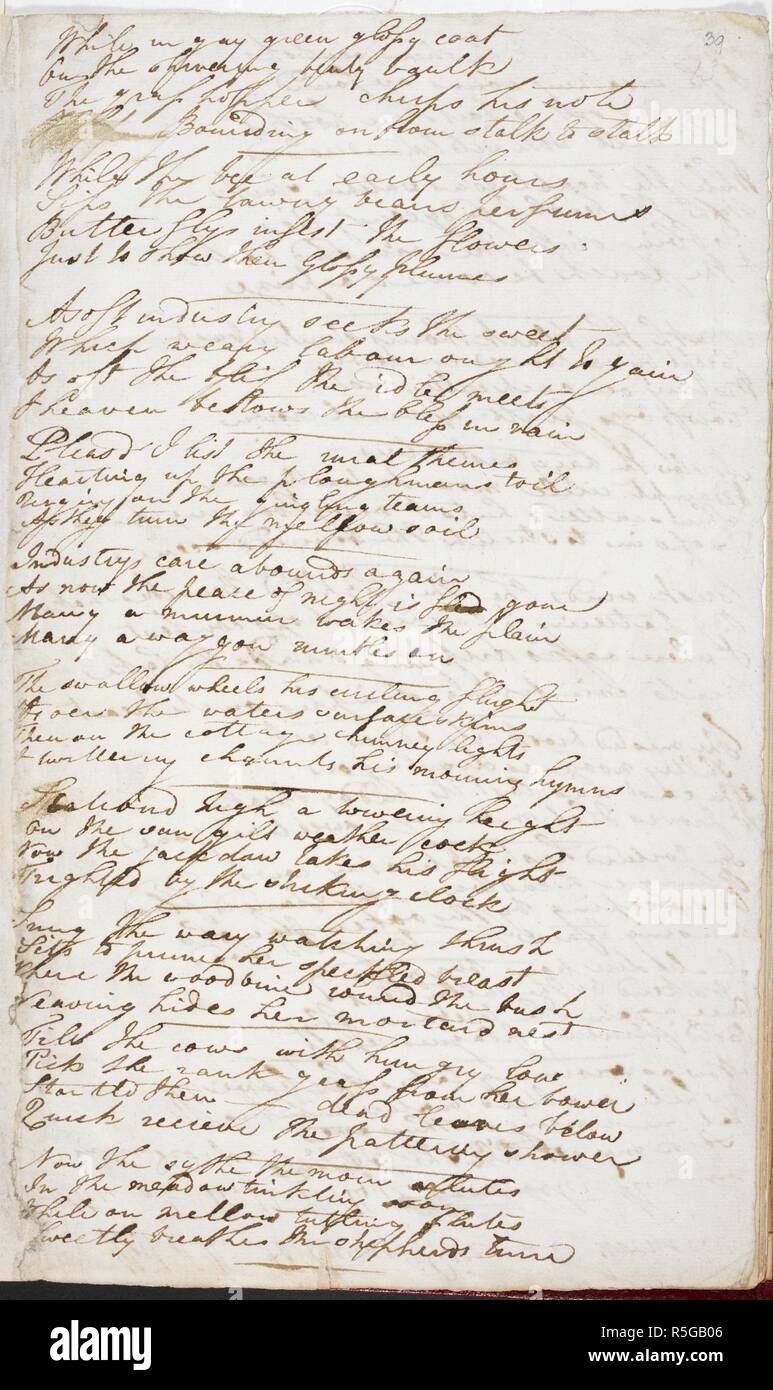 39
While in gay green glossy coat
On the shivering benty baulk
The grass hopper chirps his note
Bounding on from stalk to stalk
While the bee at early hours
Sips the tawny beans perfumes
Butter flys infest the flowers
Just to show their glossy plumes
As oft industry seeks the sweet
Which weary labour ought to gain
As oft the bliss the idle meets
& heaven bestows the bless in vain
Pleas'd I list the rural themes
Hearting up the ploughmans toil
Urging on the gingling teams
As they turn the mellow soil
Industrys care abounds again
As now the peace of night is gone
Many a murmur wakes the plain
Many a waggon rumbles on
The swallow wheels his circling flight
As oer the waters surface skims
Then on the cottage chimney lights
& twittering chaunts his morning hymns
Station'd high a towering height
On the sun gilt weather cock
Now the jack daw takes his flight
Frighted by the striking clock
Snug the wary watching thrush
Sits to prune her speckled breast
Where the woodbine round the bush
Weaving hides her mortard nest
Till the cows with hungry low
Pick the rank grass from her bower
Startld then dead leaves below
Quick recieve the pattering shower
Now the sythe the morn salutes
In the meadow tinkling soon
While on mellow tutling flutes
Sweetly breathes the shepherds tune
alamy
alamy stock photo
R5GB06
www.alamy.com